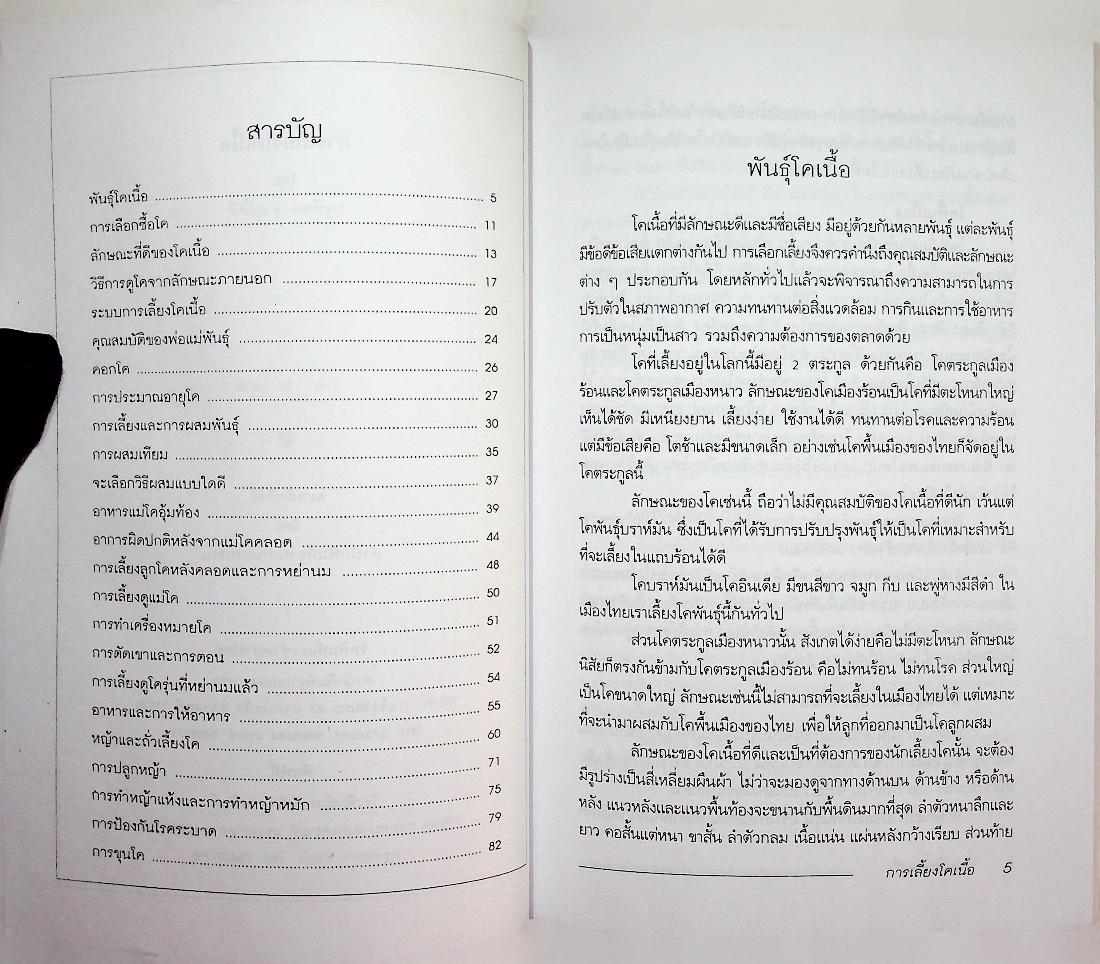 สารบัญ
พันธุ์โคเนื้อ 5
การเลือกซื้อโค 11
ลักษณะที่ดีของโคเนื้อ 13
วิธีการดูโคจากลักษณะภายนอก 17
ระบบการเลี้ยงโคเนื้อ 20
คุณสมบัติของพ่อแม่พันธุ์ 24
คอกโค 26
การประมาณอายุโค 27
การเลี้ยงและการผสมพันธุ์ 30
การผสมเทียม 35
จะเลือกวิธีผสมแบบใดดี 37
อาหารแม่โคอุ้มท้อง 39
อาการผิดปกติหลังจากแม่โคคลอด 44
การเลี้ยงลูกโคหลังคลอดและการหย่านม 48
การเลี้ยงดูแม่โค 50
การทำเครื่องหมายโค 51
การตัดเขาและการตอน 52
การเลี้ยงดูโครุ่นที่หย่านมแล้ว 54
อาหารและการให้อาหาร 55
หญ้าและถั่วเลี้ยงโค 60
การปลูกหญ้า 71
การทำหญ้าแห้งและการทำหญ้าหมัก 75
การป้องกันโรคระบาด 79
การขุนโค 82
พันธุ์โคเนื้อ
โคเนื้อที่มีลักษณะดีและมีชื่อเสียง มีอยู่ด้วยกันหลายพันธุ์ แต่ละพันธุ์
มีข้อดีข้อเสียแตกต่างกันไป การเลือกเลี้ยงจึงควรคำนึงถึงคุณสมบัติและลักษณะ
ต่าง ๆ ประกอบกัน โดยหลักทั่วไปแล้วจะพิจารณาถึงความสามารถในการ
ปรับตัวในสภาพอากาศ ความทนทานต่อสิ่งแวดล้อม การกินและการใช้อาหาร
การเป็นหนุ่มเป็นสาว รวมถึงความต้องการของตลาดด้วย
โคที่เลี้ยงอยู่ในโลกนี้มีอยู่ 2 ตระกูล ด้วยกันคือ โคตระกูลเมือง
ร้อนและโคตระกูลเมืองหนาว ลักษณะของโคเมืองร้อนเป็นโคที่มีตะโหนกใหญ่
เห็นได้ชัด มีเหนียงยาน เลี้ยงง่าย ใช้งานได้ดี ทนทานต่อโรคและความร้อน
แต่มีข้อเสียคือ โตช้าและมีขนาดเล็ก อย่างเช่นโคพื้นเมืองของไทยก็จัดอยู่ใน
โคตระกูลนี้
ลักษณะของโคเช่นนี้ ถือว่าไม่มีคุณสมบัติของโคเนื้อที่ดีนัก เว้นแต่
โคพันธุ์บราห์มัน ซึ่งเป็นโคที่ได้รับการปรับปรุงพันธุ์ให้เป็นโคที่เหมาะสำหรับ
ที่จะเลี้ยงในแถบร้อนได้ดี
โคบราห์มันเป็นโคอินเดีย มีขนสีขาว จมูก กีบ และพู่หางมีสีดำ ใน
เมืองไทยเราเลี้ยงโคพันธุ์นี้กันทั่วไป
ส่วนโคตระกูลเมืองหนาวนั้น สังเกตได้ง่ายคือไม่มีตะโหนก ลักษณะ
นิสัยก็ตรงกันข้ามกับโคตระกูลเมืองร้อน คือไม่ทนร้อน ไม่ทนโรค ส่วนใหญ่
เป็นโคขนาดใหญ่ ลักษณะเช่นนี้ไม่สามารถที่จะเลี้ยงในเมืองไทยได้ แต่เหมาะ
ที่จะนำมาผสมกับโคพื้นเมืองของไทย เพื่อให้ลูกที่ออกมาเป็นโคลูกผสม
ลักษณะของโคเนื้อที่ดีและเป็นที่ต้องการของนักเลี้ยงโคนั้น จะต้อง
มีรูปร่างเป็นสี่เหลี่ยมผืนผ้า ไม่ว่าจะมองดูจากทางด้านบน ด้านข้าง หรือด้าน
หลัง แนวหลังและแนวพื้นท้องจะขนานกับพื้นดินมากที่สุด ลำตัวหนาลึกและ
ยาว คอสั้นแต่หนา ขาสั้น ลำตัวกลม เนื้อแน่น แผ่นหลังกว้างเรียบ ส่วนท้าย
การเลี้ยงโคเนื้อ 5